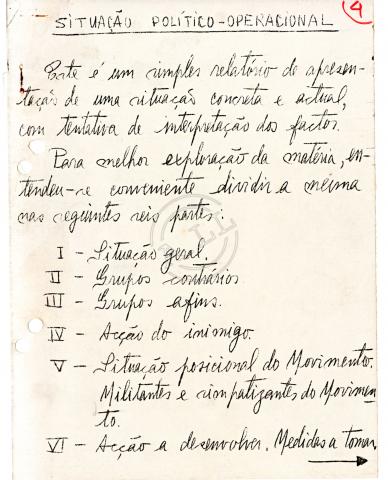 4
SITUAÇÃO POLÍTICO-OPERACIONAL
Este é um simples relatório de apresen-
tação de uma situação concreta e actual,
com tentativa de interpretação dos factos.
Para melhor exploração da matéria, en-
tendeu-se conveniente dividir a mesma
nas seguintes seis partes:
I - Situação geral.
II - Grupos contrários
III - Grupos afins.
IV - Acção do inimigo.
V - Situação posicional do Movimento.
Militantes e simpatizantes do Movimen-
to.
VI - Acção a desenvolver. Medidas a tomar